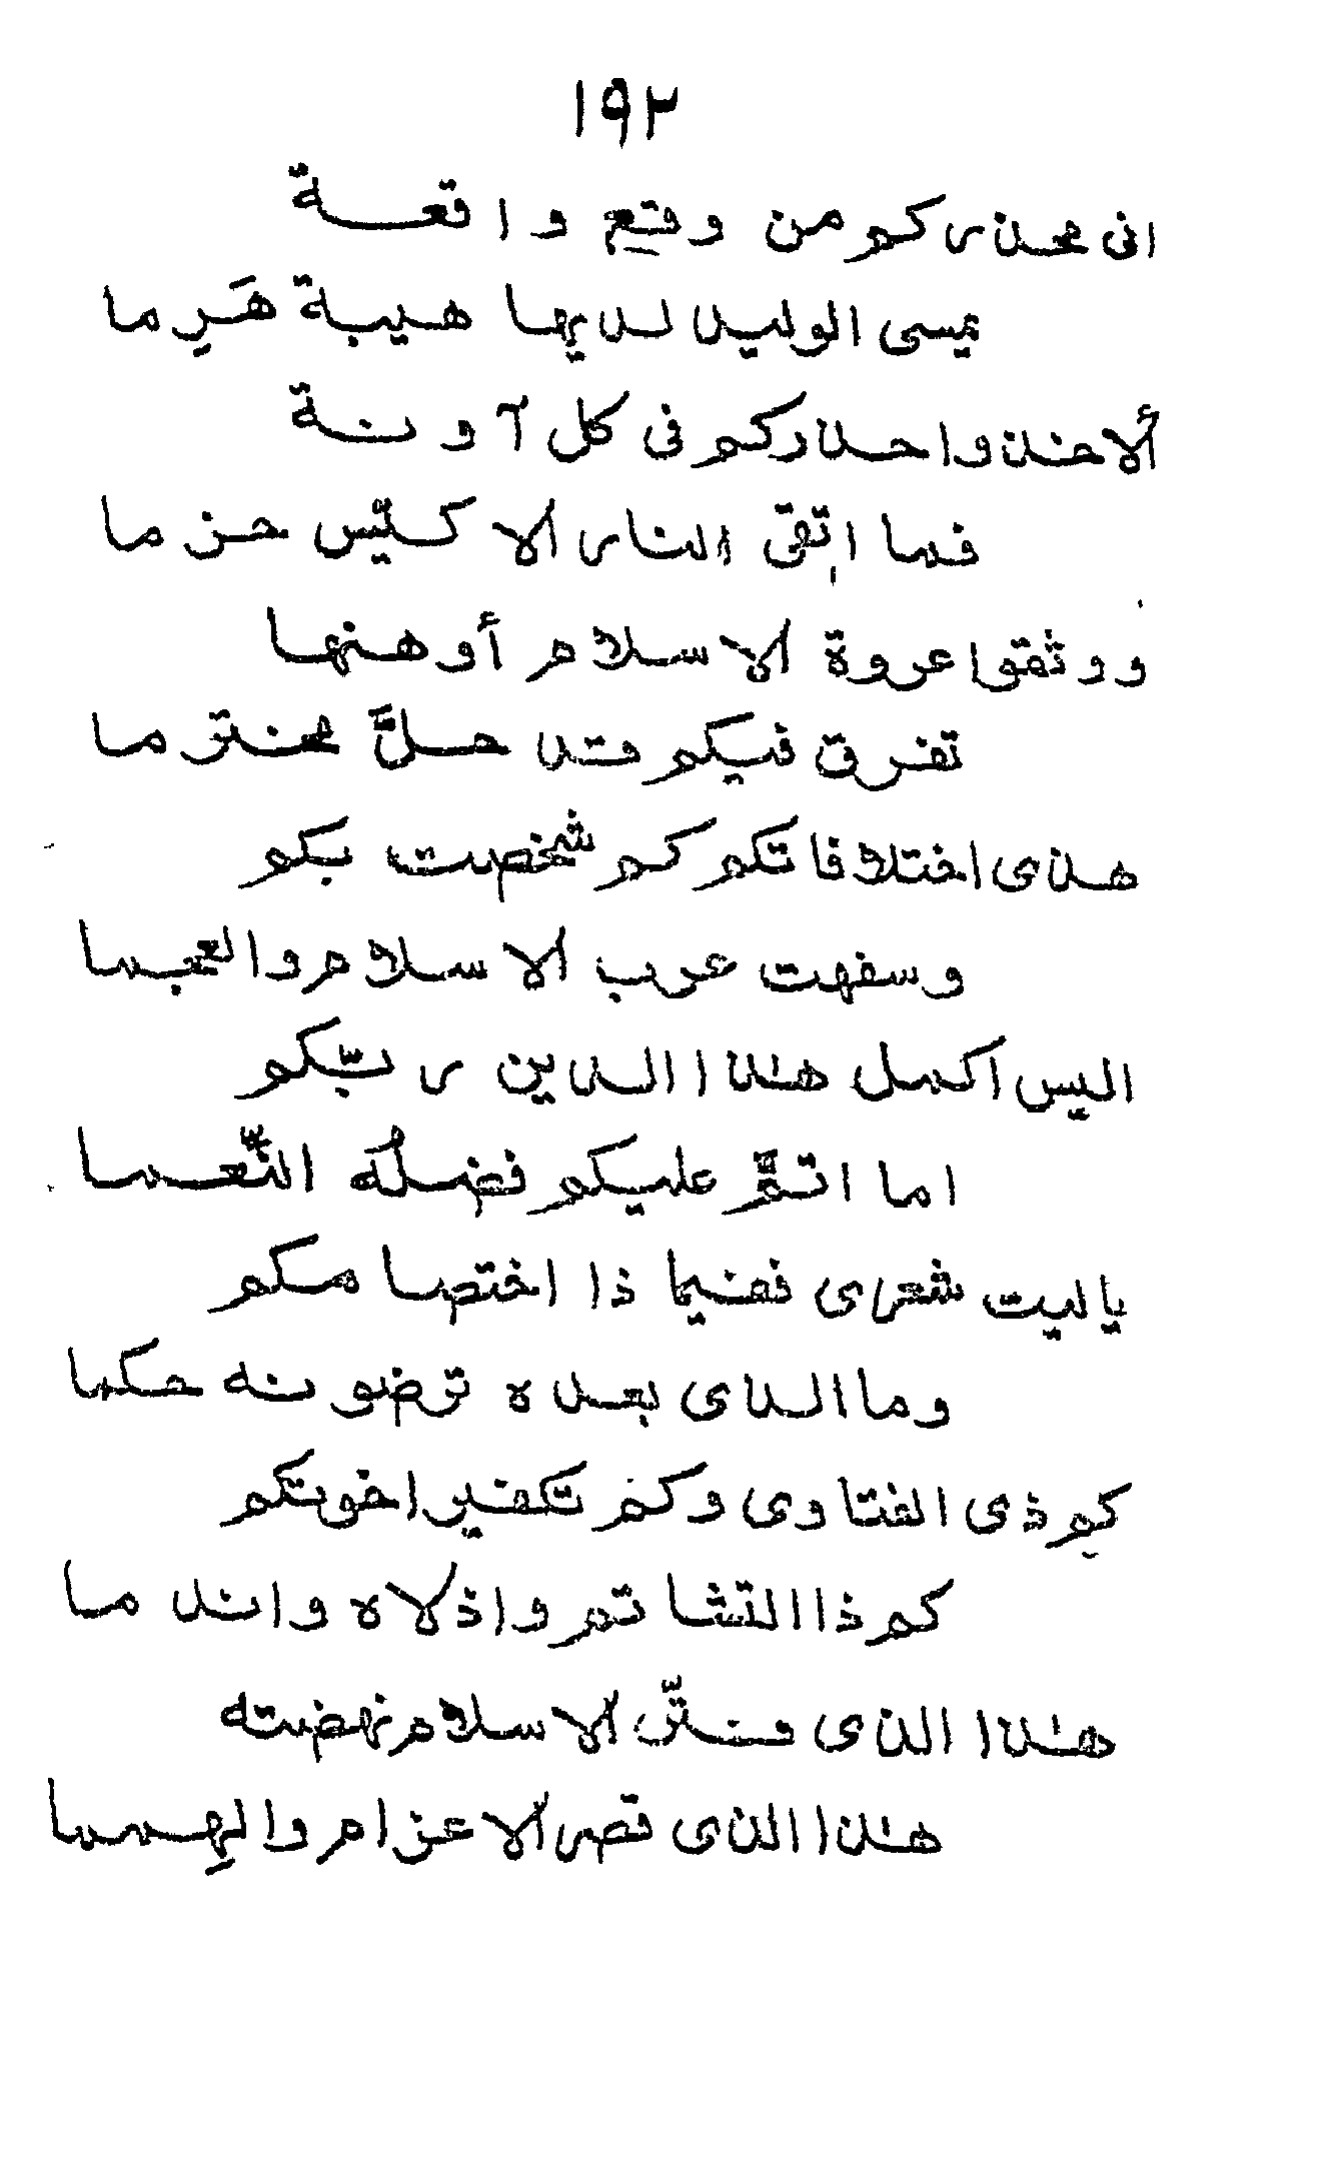 ١٩٢
انى محذركم من وقع واقعة
يمسى الوليد لديها هيبة هَرِما
ألا خذوا حذركم فى كل آونة
فما اتقى النار الا كيّس حزما
ووثقوا عروة الاسلام أوهنها
تفرق فيكم قد حلَّ مخترما
هذى اختلافاتكم كم شخصت بكم
وسفهت عرب الاسلام والعجما
اليس اكمل هذا الدين ربّكم
اما اتمَّ عليكم فضلُه النّعما
ياليت شعرى ففيما ذا اختصامكم
وما الذى بعده ترضونه حكما
كم ذى الفتاوى وكم تكفير اخوتكم
كم ذا التشاتم واذلاه واندما
هذا الذى فتّر الاسلام نهضته
هذا الذى قصر الاعزام والهِمما